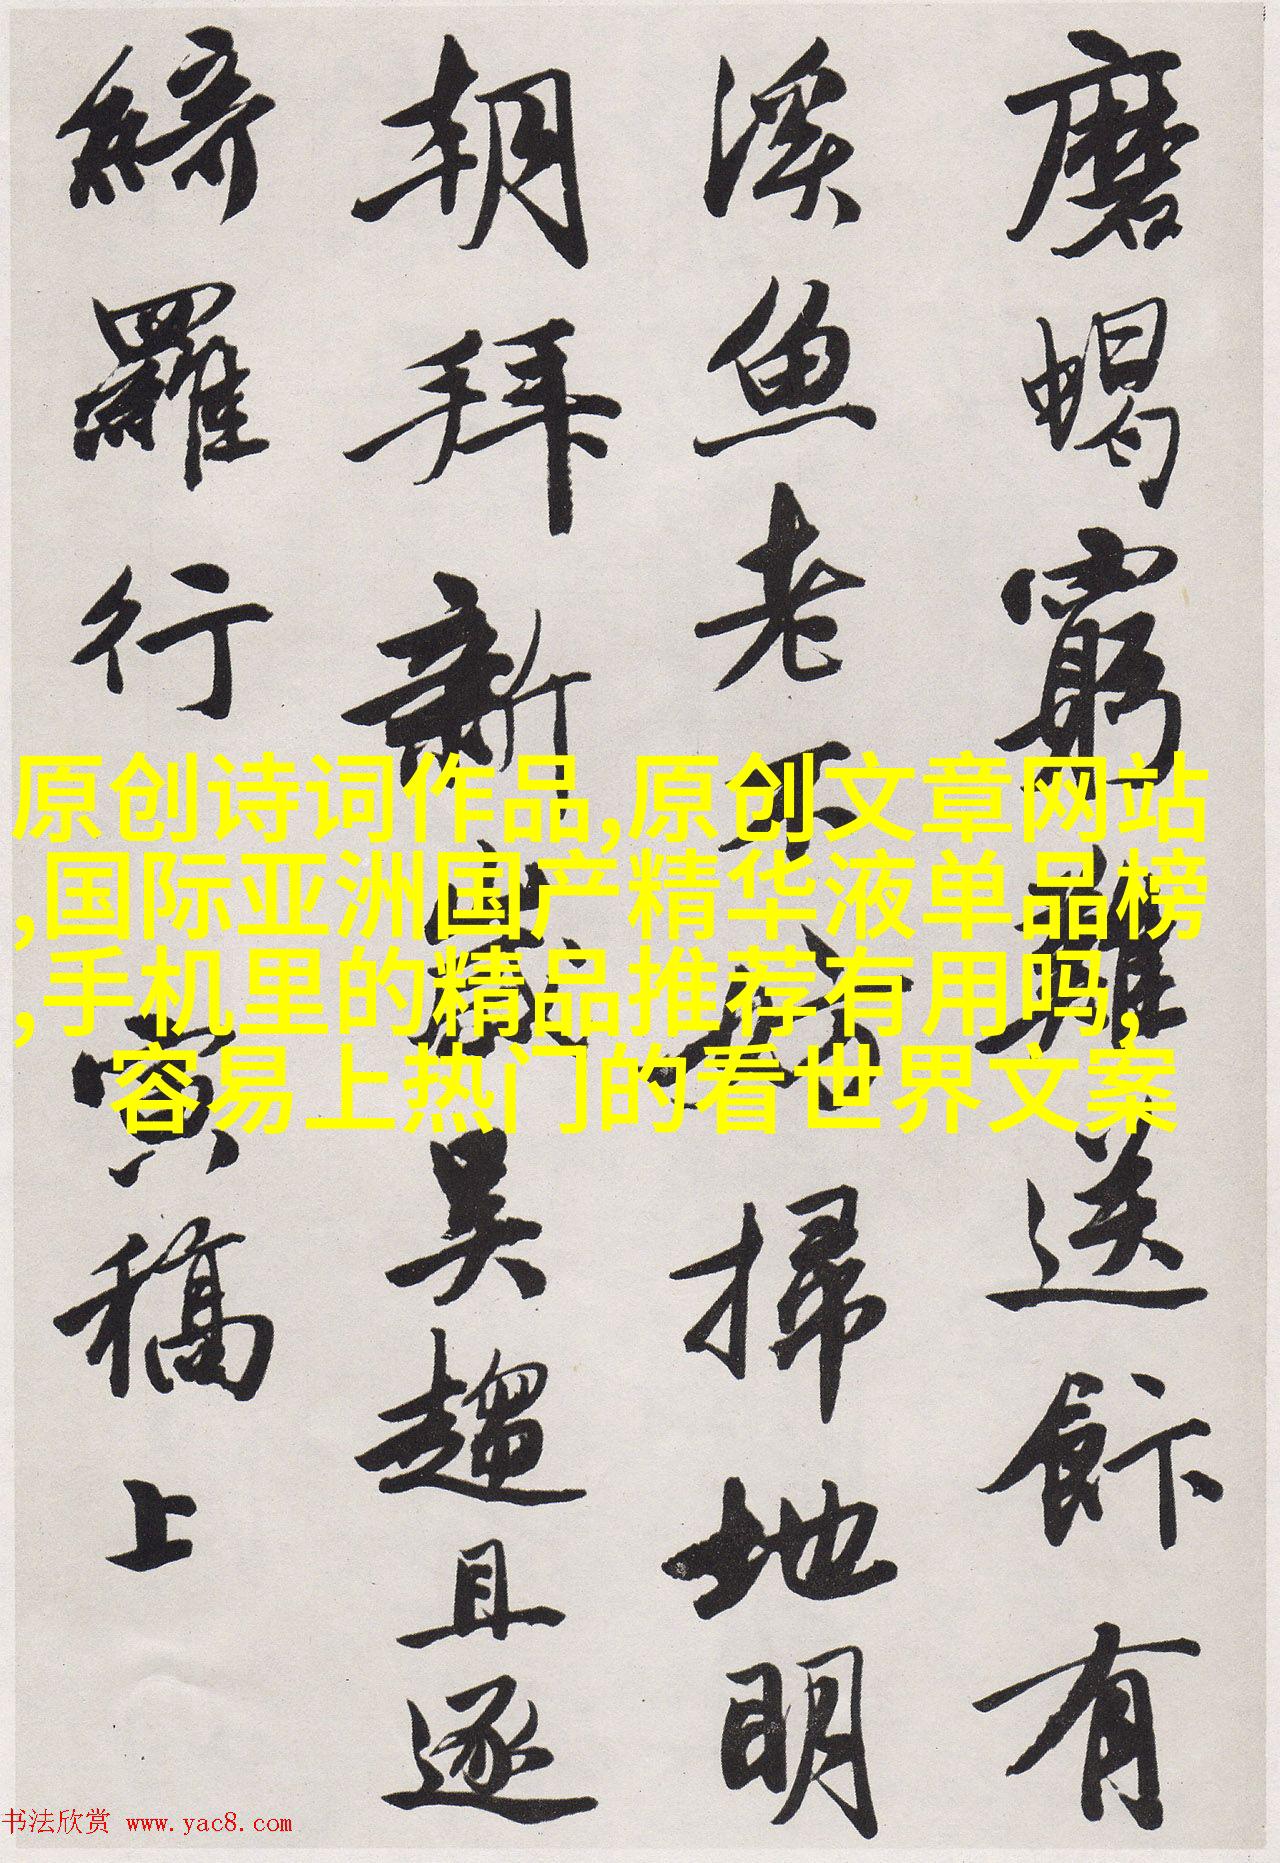 磨蝎窮難送飰有
溪魚老不掃地明
朝拜新歲吳趨且逐
綺羅行
寅稿上
原创诗词作品,原创文章网站
,国际亚洲国产精华液单品榜
,手机里的精品推荐有用吗,
容易上热门的看世界文案
书法欣赏 www.yac8.com